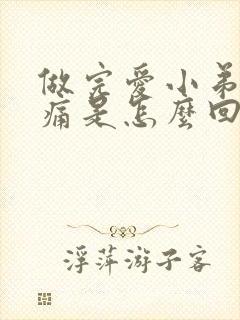 做完愛小弟
痛是怎麼回
浮萍游子客